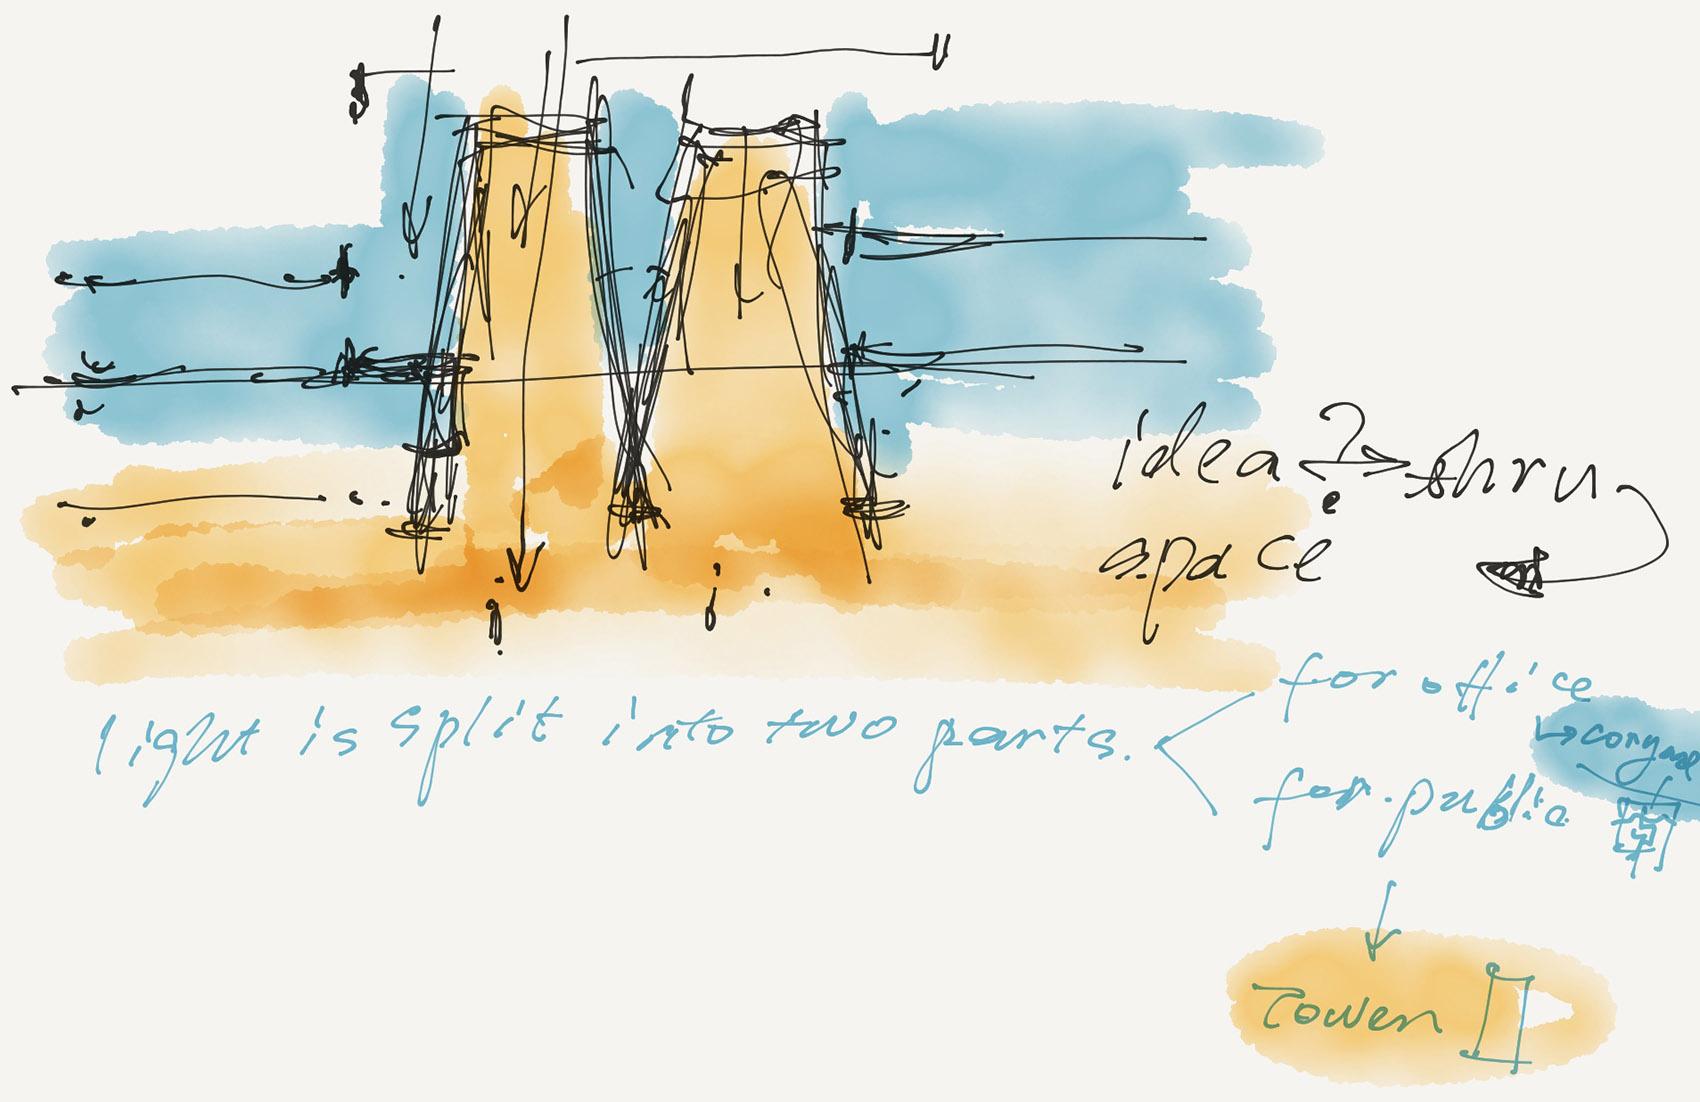 idea ? → thru
space
light is split into two parts. < for office
for public
Tower